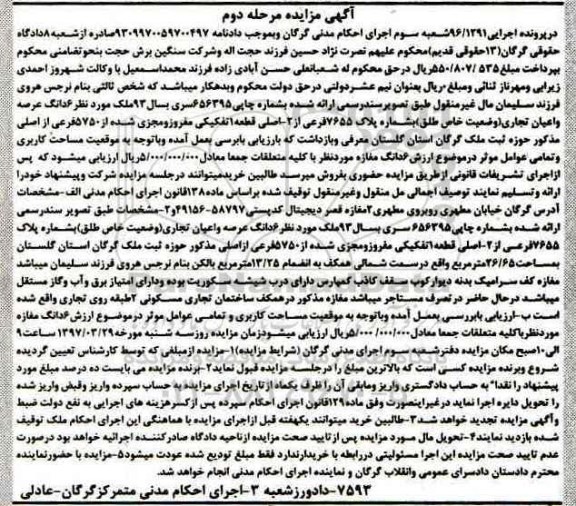 آگهی مزایده مرحله دوم
درپرونده اجرایی۹۶/۱۲۹۱شعبه سوم اجرای احکام مدنی گرگان وبموجب دادنامه ۹۳۰۹۹۷۰۰۵۹۷۰۰۴۹۷صادره ازشعبه ۸دادگاه
حقوقی گرگان(۱۳حقوقی قدیم)محکوم علیهم نصرت نژاد حسین فرزند حجت اله وشرکت سنگین برش حجت بنحوتضامنی محکوم
بپرداخت مبلغ۵۳۵ /۵۵۰/۸۰۷ریال درحق محکوم له شعبانعلی حسن آبادی زاده فرزند محمداسمعیل با وکالت شهروز احمدی
زیرابی ومهرناز ثنائی ومبلغ۰ریال بعنوان نیم عشردولتی درحق دولت محکوم وبدهکار میباشد که شخص ثالثی بنام نرجس هروی
فرزند سلیمان مال غیرمنقول طبق تصویرسندرسمی ارائه شده بشماره چاپی۶۵۶۳۹۵سری بسال۹۳ملک مورد نظر۶دانگ عرصه
واعیان تجاری(وضعیت خاص طلق)بشماره پلاک ۷۶۵۵فرعی از۲-اصلی قطعه۱تفکیکی مفروزومجزی شده از۵۷۵۰فرعی از اصلی
مذکور حوزه ثبت ملک گرگان استان گلستان معرفی وبازداشت که بارزیابی بابررسی بعمل آمده وباتوجه به موقعیت مساحت کاربری
وتمامی عوامل موثر درموضوع ارزش ۶دانگ مغازه موردنظر با کلیه متعلقات جمعا معادل۵/۰۰۰/۰۰۰/۰۰۰ریال ارزیابی میشود که پس
ازاجرای تشریفات قانونی ازطریق مزایده حضوری بفروش میرسد طالبین خریدمیتوانند درجلسه مزایده شرکت وپیشنهاد خودرا
ارائه وتسلیم نمایند توصیف اجمالی مل منقول وغیرمنقول توقیف شده براساس ماده۱۳۸قانون اجرای احکام مدنی الف-مشخصات
آدرس گرگان خیابان مطهری روبروی مطهری۲مغازه قصر دیجیتال کدپستی۵۸۷۹۷-۴۹۱۵۶و۲-مشخصات طبق تصویر سندرسمی
ارائه شده بشماره چاپی۶۵۶۳۹۵ سری بسال۹۳ملک مورد نظر۶دانگ عرصه واعیان تجاری(وضعیت خاص طلق)بشماره پلاک
۷۶۵۵فرعی از۲-اصلی قطعه۱تفکیکی مفروزومجزی شده از۵۷۵۰فرعی ازاصلی مذکور حوزه ثبت ملک گرگان استان گلستان
بمساحت۲۶/۶۵مترمربع واقع درسمت شمالی همکف به انضمام ۱۳/۲۵مترمربع بالکن بنام نرجس هروی فرزند سلیمان میباشد
مغازه کف سرامیک بدنه دیوارکوب سقف کاذب کمپارس دارای درب شیشه سکوریت بوده ودارای امتیاز برق وآب وگاز مستقل
میباشد درحال حاضر در تصرف مستاجر میباشد مغازه مذکور درهمکف ساختمان تجاری مسکونی ۲طبقه روی تجاری واقع شده
است ب-ارزیابی بابررسی بعمل آمده وباتوجه به موقعیت مساحت کاربری و تمامی عوامل موثر درموضوع ارزش ۶دانگ مغازه
موردنظرباکلیه متعلقات جمعا معادل ۵/۰۰۰/۰۰۰/۰۰۰ریال ارزیابی میشودزمان مزایده روزسه شنبه مورخه ۱۳۹۷/۰۳/۲۹ساعت۹
الی۱۰صبح مکان مزایده دفترشعبه سوم اجرای مدنی گرگان (شرایط مزایده)۱-مزایده ازمبلغی که توسط کارشناس تعیین گردیده
شروع وبرنده مزایده کسی است که بالاترین مبلغ را درجلسه مزایده قبول نماید۲-برنده مزایده می بایست ده درصد مبلغ مورد
پیشنهاد را نقدا" به حساب دادگستری واریز ومابقی آن را ظرف یکماه ازتاریخ اجرای مزایده به حساب سپرده واریز وقبض واریز شده
را تحویل دایره اجرا نماید درغیراینصورت وفق ماده۱۲۹قانون اجرای احکام سپرده پس ازکسرهزینه های اجرایی به نفع دولت ضبط
وآگهی مزایده تجدید خواهد شد۳-طالبین خرید میتوانند یکهفته قبل ازاجرای مزایده با هماهنگی این اجرای احکام ملک توقیف
شده بازدید نمایند۴-تحویل مال مورد مزایده پس ازتایید صحت مزایده ازناحیه دادگاه صادرکننده اجرائیه خواهد بود درصورت
عدم تایید صحت مزایده این اجرا مسئولیتی دررابطه با خریدارندارد فقط مبلغ تودیع شده عودت میشود۵-مزایده با حضورنماینده
محترم دادستان دادسرای عمومی وانقلاب گرگان و نماینده اجرای احکام مدنی انجام خواهد شد.
۷۵۹۳-دادورزشعبه ۳-اجرای احکام مدنی متمرکزگرگان-عادلی